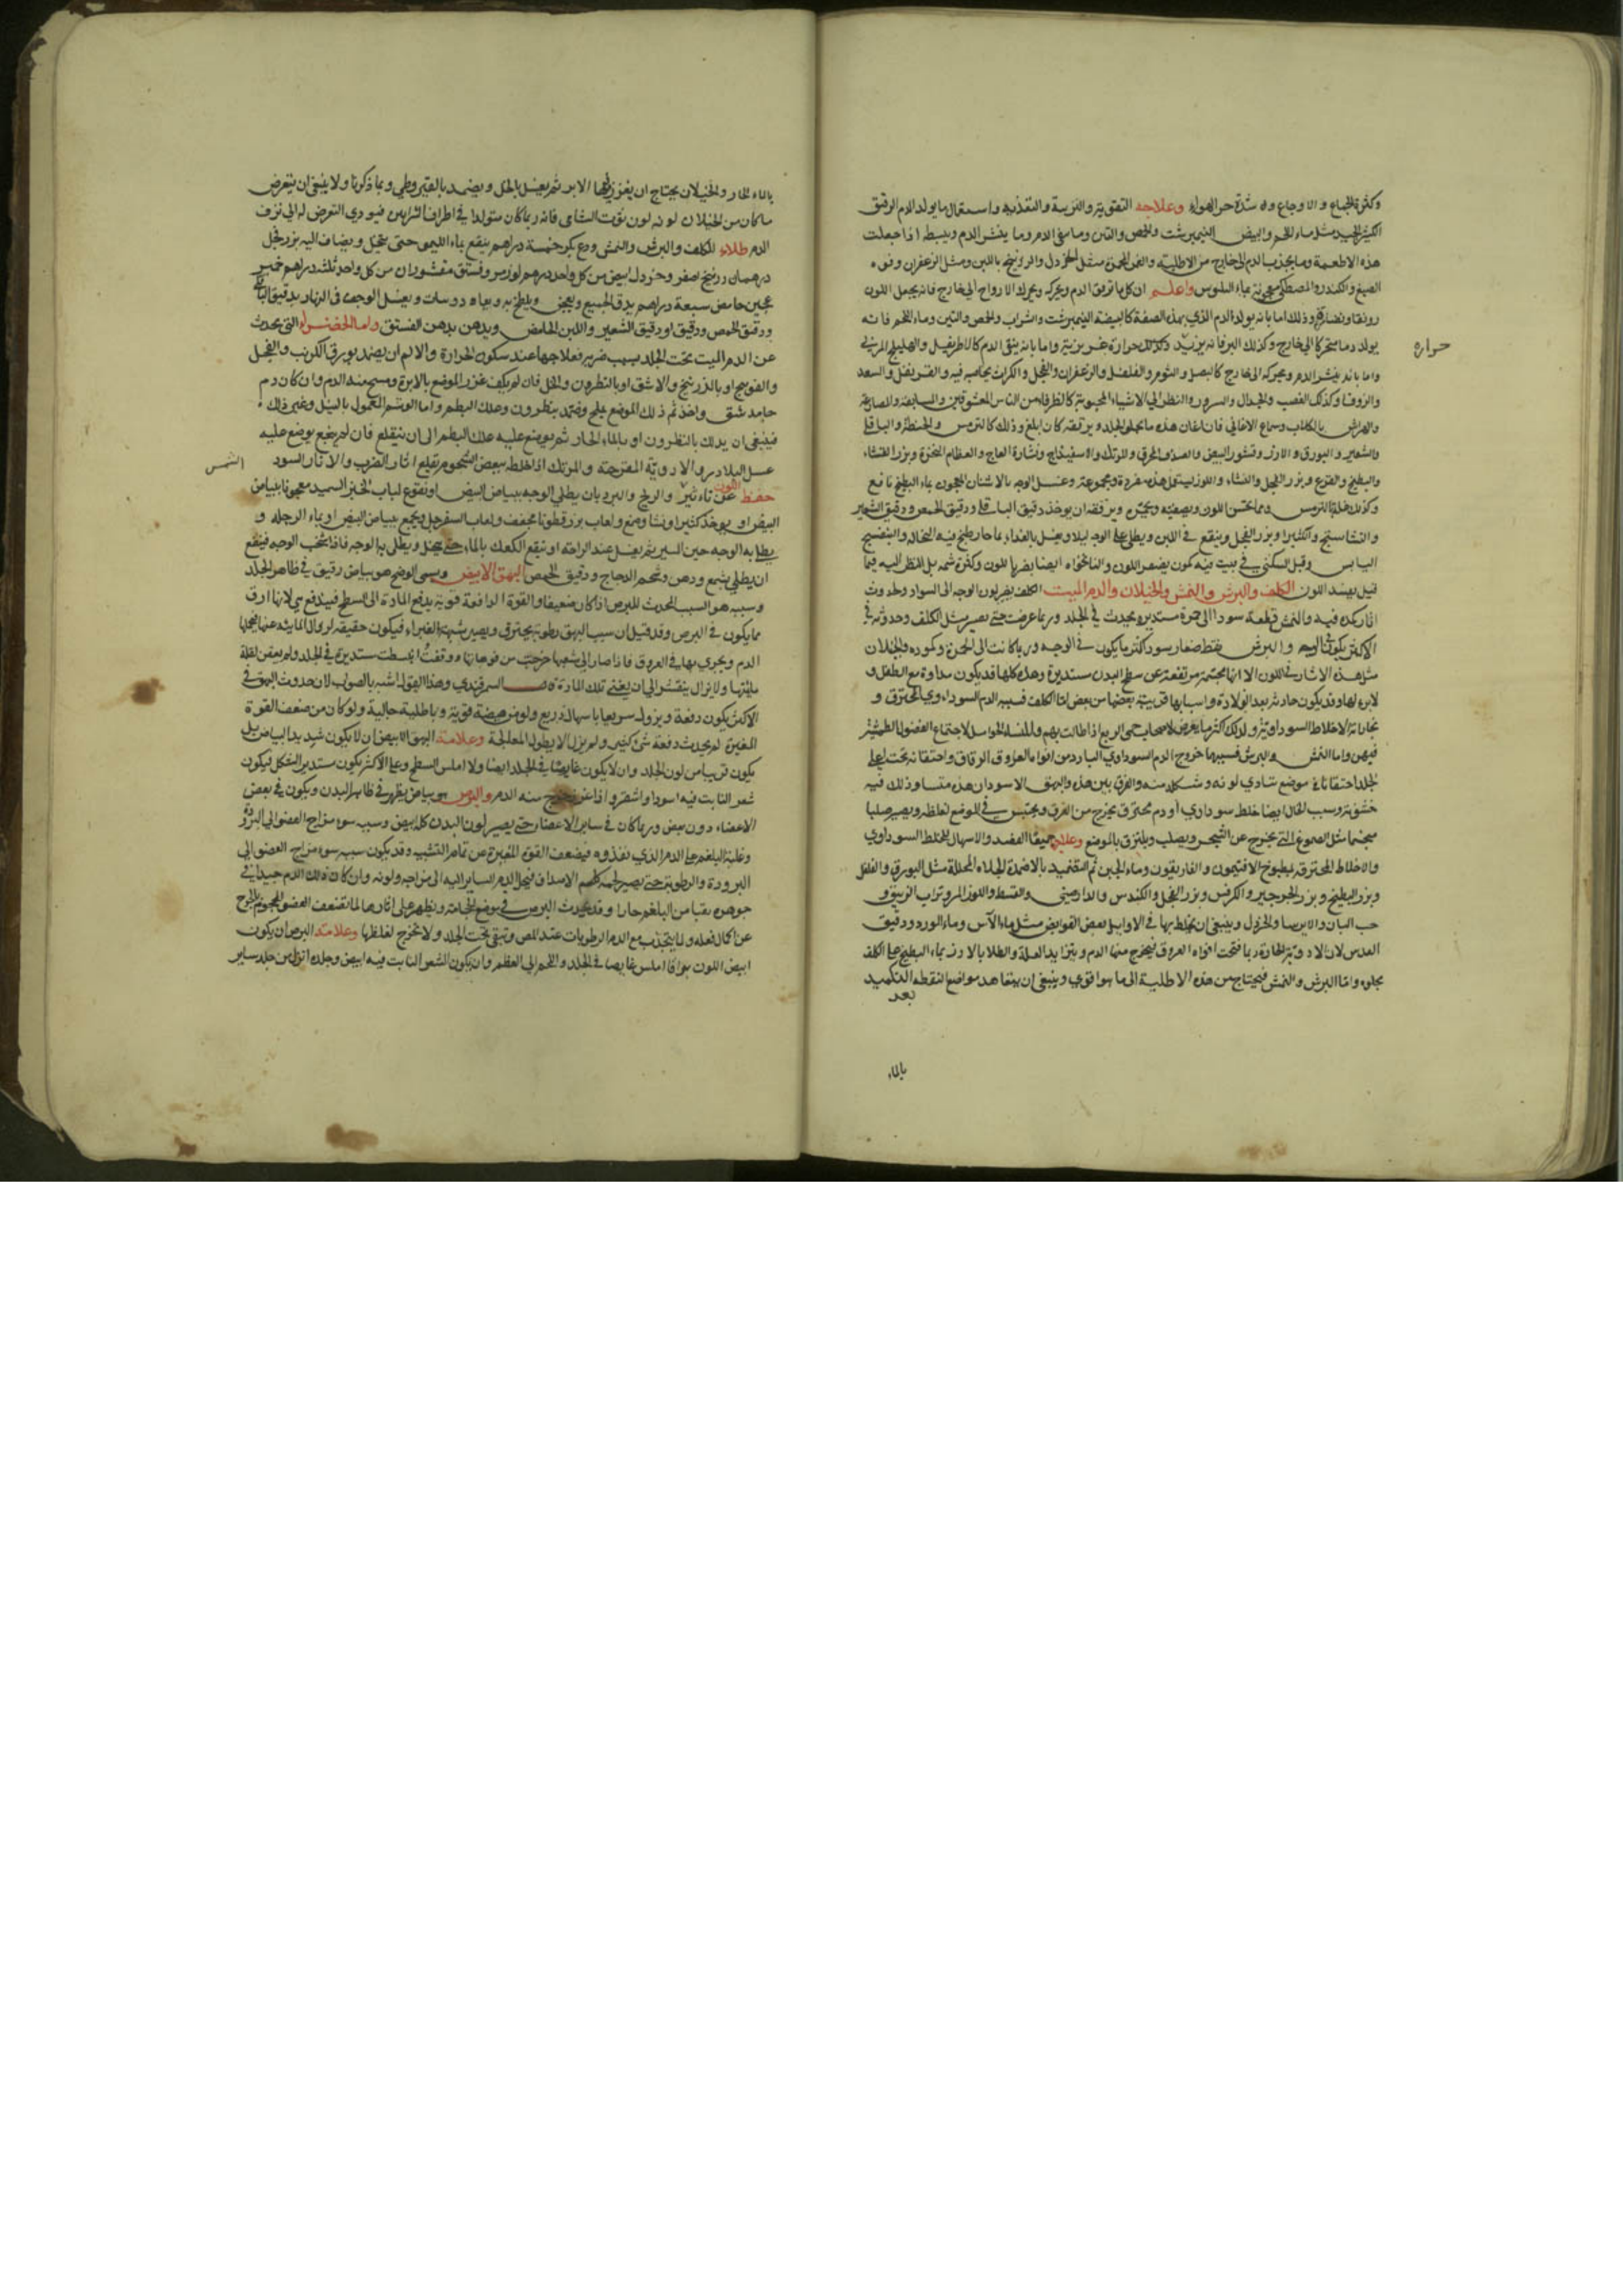 وكثرة الجماع والاوجاع و شدة حر الهواء وعلاجه التقوية والتغذية واستعمال ما يولد الدم الرقيق
الكثير الجيد مثل ماء اللحم والبيض النيمبرشت والحمص والتين وما ينقي الدم وما ينشر الدم ويبسط اذا جعلت
هذه الاطعمة وما يجذب الدم الى خارج من الاطلية مثل الخردل والزرنيخ باللبن ومثل الزعفران وفوه
الصبغ والكندر والمصطكي معجونة بماء البلوس واعلم ان كل ما ترقق الدم ويحركه ويحرك الارواح الى خارج فانه يجعل اللون
رونقا ونضارة وذلك اما بانه يولد الدم الذي بهذه الصفة كالبيضة النيمبرشت والشراب والحمص والتين وماء اللحم فانه
يولد دما متحركا الى خارج وكذلك البر فانه يزيد حرارة غريزية واما بانه ينقي الدم كالاطريفل والهليلج المربى
حراره
واما بانه ينشر الدم ويحركه الى خارج كالبصل والثوم والفلفل والزعفران والفجل والكراث والقرنفل والسعد
والزوفا وكذلك الغضب والجدال والسرور والنظر الى الاشياء المحبوبة
بالكلاب وسماع الاغاني فان كان هذه مما يجلو الجلد ويرققه كان ابلغ وذلك كالترمس والحنطة والباقلي
والشعير والبورق والارز وقشور البيض والصدف المحرق والمرتك والاسفيذاج ونشارة العاج والعظام النخرة وبزر القثاء
والبطيخ والقرع وبزر الفجل والنشاء واللوز يستعمل هذه مفردة ومجموعة وغسل الوجه بالاشنان المعجون بماء البطيخ نافع
وكذلك الترمس ومما يحسن اللون ويصفيه ويحمره ويرققه ان يوخذ دقيق الباقلي ودقيق الحمص ودقيق الشعير
والنشاستج والكثيرا وبزر الفجل وينقع في اللبن ويطلى على الوجه ليلا ويغسل بالغداة بماء حار طبخ فيه النخالة والبنفسج
اليابس وقيل السكنى في بيت فيه كمون يصفر اللون والنانخواه ايضا يضر باللون وكثرة شمه بل النظر اليه فيما
قيل يفسد اللون الكلف والبرش والنمش والخيلان والدم الميت الكلف تغير لون الوجه الى السواد وحدوث
اثار كمدة فيه والنمش قطعة سوداء الى حمرة مستديرة يحدث في الجلد وربما عرضت حتى يصير مثل الكلف وحدوثه في
الاكثر يكون في الوجه والبرش نقط صغار سود اكثر ما يكون في الوجه وربما كانت الى الحمرة وكمودة والخيلان
مثل هذه الاثار في اللون الا انها مجتمعة مرتفعة عن سطح البدن مستديرة وهذه كلها قد يكون بداوة مع الطفل و
وقد يكون حادثة بعد الولادة واسبابها قريبة بعضها من بعض اما الكلف فسببه الدم السوداوي المحترق و
بخارات الاخلاط السوداوية ولذلك كثر ما يعرض لاصحاب حمى الربع اذا طالت بهم وللنساء الحوامل لاجتماع الفضول الطمثية
فيهن واما النمش والبرش فسببهما خروج الدم السوداوي البارد من افواه العروق الرقاق واحتقانه تحت اعلى
الجلد احتقانا في موضع تساوي لونه وشكله منه والفرق بين هذه والبهق الاسود ان هذه متساو وذلك فيه
خشونة وسبب الخال ايضا خلط سوداوي او دم محترق يخرج من العرق ويحتبس في الموضع لغلظه ويصير صلبا
متجمدا مثل الصموغ التي تخرج عن الشجر ويصلب ويلتزق بالموضع وعلاجه جميعا الفصد والاسهال للخلط السوداوي
والاخلاط المحترقة بمطبوخ الافتيمون والغاريقون وماء الجبن ثم التضميد بالاضمدة الجلاءة المحللة مثل البورق والفلفل
وبزر البطيخ وبزر الجرجير والكرفس وبزر الفجل والكندس والدارصيني والقسط واللوز المر وتراب الزيبق و
حب البان والايرسا والخردل وينبغي ان يخلط بها في الاوائل بعض القوابض مثل ماء الآس وماء الورد ودقيق
العدس لان الادوية الحادة ربما فتحت افواه العروق فيخرج منها الدم ويتزايد العلة والطلا بالارز بماء البطيخ على الكلف
يجلوه واما البرش والنمش فيحتاج من هذه الاطلية الى ما هو اقوى وينبغي ان يتعاهد مواضع النقطة التكميد
بعد
بالماء
بالماء الحار والخيلان يحتاج ان يغرز فيها الابر ثم يغسل بالخل ويضمد بالقيروطي وبما ذكرنا ولا ينبغي ان يتعرض
ما كان من الخيلان لونه لون توت الشامي فانه ربما كان متولدا في اطراف الشرايين فيودي التعرض له الى نزف
الدم طلاء للكلف والبرش والنمش ودع بكر خمسة دراهم ينقع بماء الليمو حتى ينحل ويضاف اليه بزر فجل
درهمان زرنيخ اصفر وخردل ابيض من كل واحد درهم لوز مر وفستق مقشوران من كل واحد ثلثة دراهم خمير
عجين حامض سبعة دراهم يدق الجميع ويعجن ويلطخ به ويعاود مرات ويغسل الوجه في النهار بدقيق الباقلي
ودقيق الحمص ودقيق او دقيق الشعير واللبن الحامض ويدهن بدهن الفستق واما الخضراء التي يحدث
عن الدم الميت تحت الجلد بسبب ضربه فعلاجها عند سكون الحرارة والالم ان يضمد بورق الكرنب والفجل
والفوتنج او بالزرنيخ والاشق او بالنطرون والخل فان لم يكف غرز الموضع بالابرة ومسح منه الدم وان كان دم
جامد شق واخذ ثم ذلك الموضع بملح وضمد بنطرون وعلك البطم واما الوشم المعمول بالنيل وغير ذلك
فينبغي ان يدلك بالنطرون او بالماء الحار ثم يوضع عليه علك البطم الى ان ينقلع فان لم ينجع يوضع عليه
عسل البلادر والادوية المقرحة والمرتك اذا خلط ببعض الشحوم تقلع اثار الضرب والاثار السود
حفظ اللون عن تاثير والريح والبرد بان يطلى الوجه ببياض البيض او نقوع لباب الخبز السميد معجونا ببياض
الشمس
البيض او يوخذ كثيرا ونشا وصمغ ولعاب بزر قطونا مجفف ولعاب السفرجل ويجمع ببياض البيض او بماء الرجلة و
يطلى به الوجه حين السير ثم يغسل عند الراحة او ينقع الكعك بالماء حتى ينحل ويطلى به الوجه فاذا شحب الوجه فينفع
ان يطلى بشمع ودهن وشحم الدجاج ودقيق الحمص البهق الابيض ويسمى الوضح هو بياض رقيق في ظاهر الجلد
وسببه هو السبب المحدث للبرص اذا كان ضعيفا والقوة الدافعة قوية يدفع المادة الى السطح فيندفع هي لانها ارق
مما يكون في البرص وقد قيل ان سبب البهق رطوبة يحترق ويصير شبيهة بالغبراء فيكون حقيقة لزوال المائية عنها فيحملها
الدم ويجري بها في العروق فاذا صار الى شعبها خرجت من فوهاتها ووقفت انبسطت مستديرة في الجلد ولم يعفن لقلة
مائيتها ولا يزال ينقشر الى ان يفنى تلك المادة قال السمرقندي وهذا القول اشبه بالصواب لان حدوث البهق في
الاكثر يكون دفعة ويزول سريعا باسهال ذريع ولو من هيضة قوية وباطلية جالية ولو كان من ضعف القوة
المغيرة لم يحدث دفعة شيء كثير ولم يزل الا بطول المعالجة وعلامة البهق الابيض ان لا يكون شديد البياض بل
يكون قريبا من لون الجلد وان لا يكون غايصا في الجلد ايضا ولا املس السطح وعلى الاكثر يكون مستدير الشكل فيكون
شعر النابت فيه اسود او اشقر واذا غرز خرج منه الدم والبرص هو بياض يظهر في ظاهر البدن ويكون في بعض
الاعضاء دون بعض وربما كان في ساير الاعضاء حتى يصير لون البدن كله ابيض وسببه سوء مزاج العضو الى البرودة
وغلبة البلغم على الدم الذي يغذوه فيضعف القوة المغيرة عن تمام التشبيه وقد يكون سببه سوء مزاج العضو الى
البرودة والرطوبة حتى يصير لحمه كلحم الاصداف فيحيل الدم الساير اليه الى مزاجه ولونه وان كان ذلك الدم جيدا في
جوهره نقيا من البلغم حارا وقد يحدث البرص في موضع الحجامة ويظهر على اثارها لما تضعف العضو المحجوم بالجرح
عن اكمال فعله ولما ينجذب مع الدم الرطوبات عند المص وتبقى تحت الجلد ولا تخرج لغلظها وعلامة البرص ان يكون
ابيض اللون براقا املس غايصا في الجلد واللحم الى العظم وان يكون الشعر النابت فيه ابيض وجلده انزل من جلد ساير